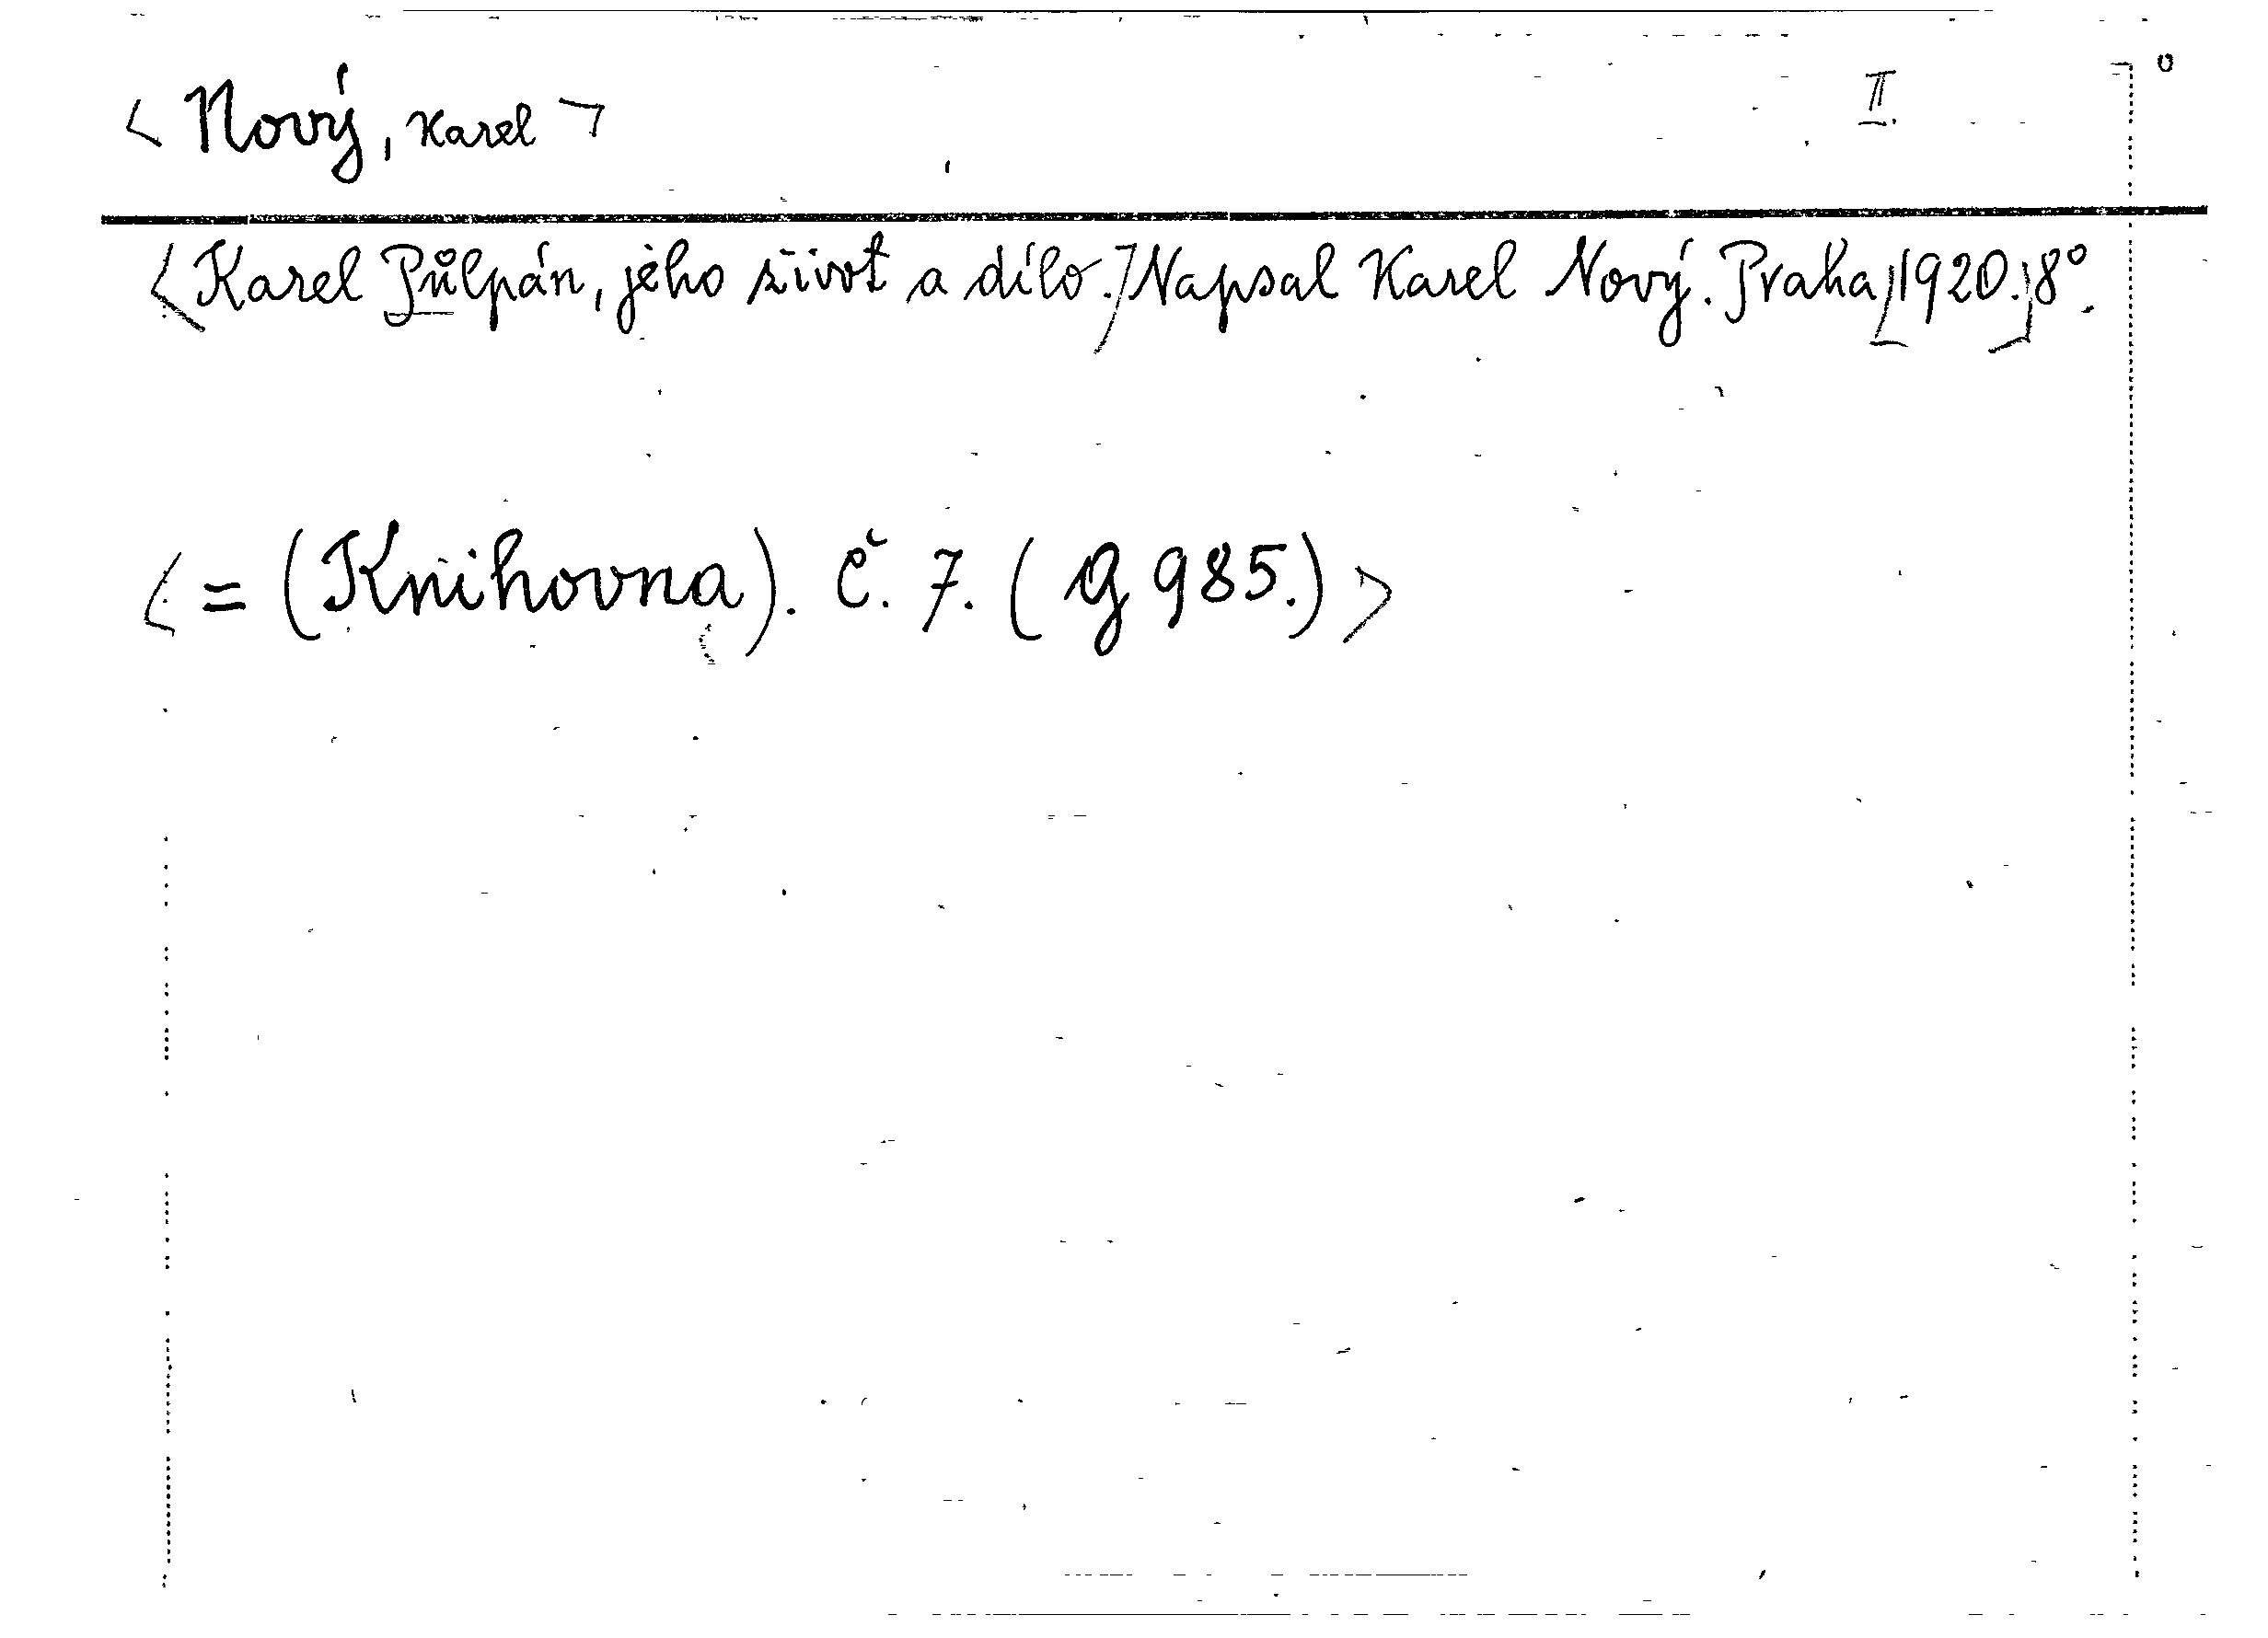 < Nový, Karel > II.
<Karel Půlpán, jeho život a dílo.> Napsal Karel Nový. Praha, [1920.] 8°.
< = (Knihovna). č. 7. ( G 985.) >